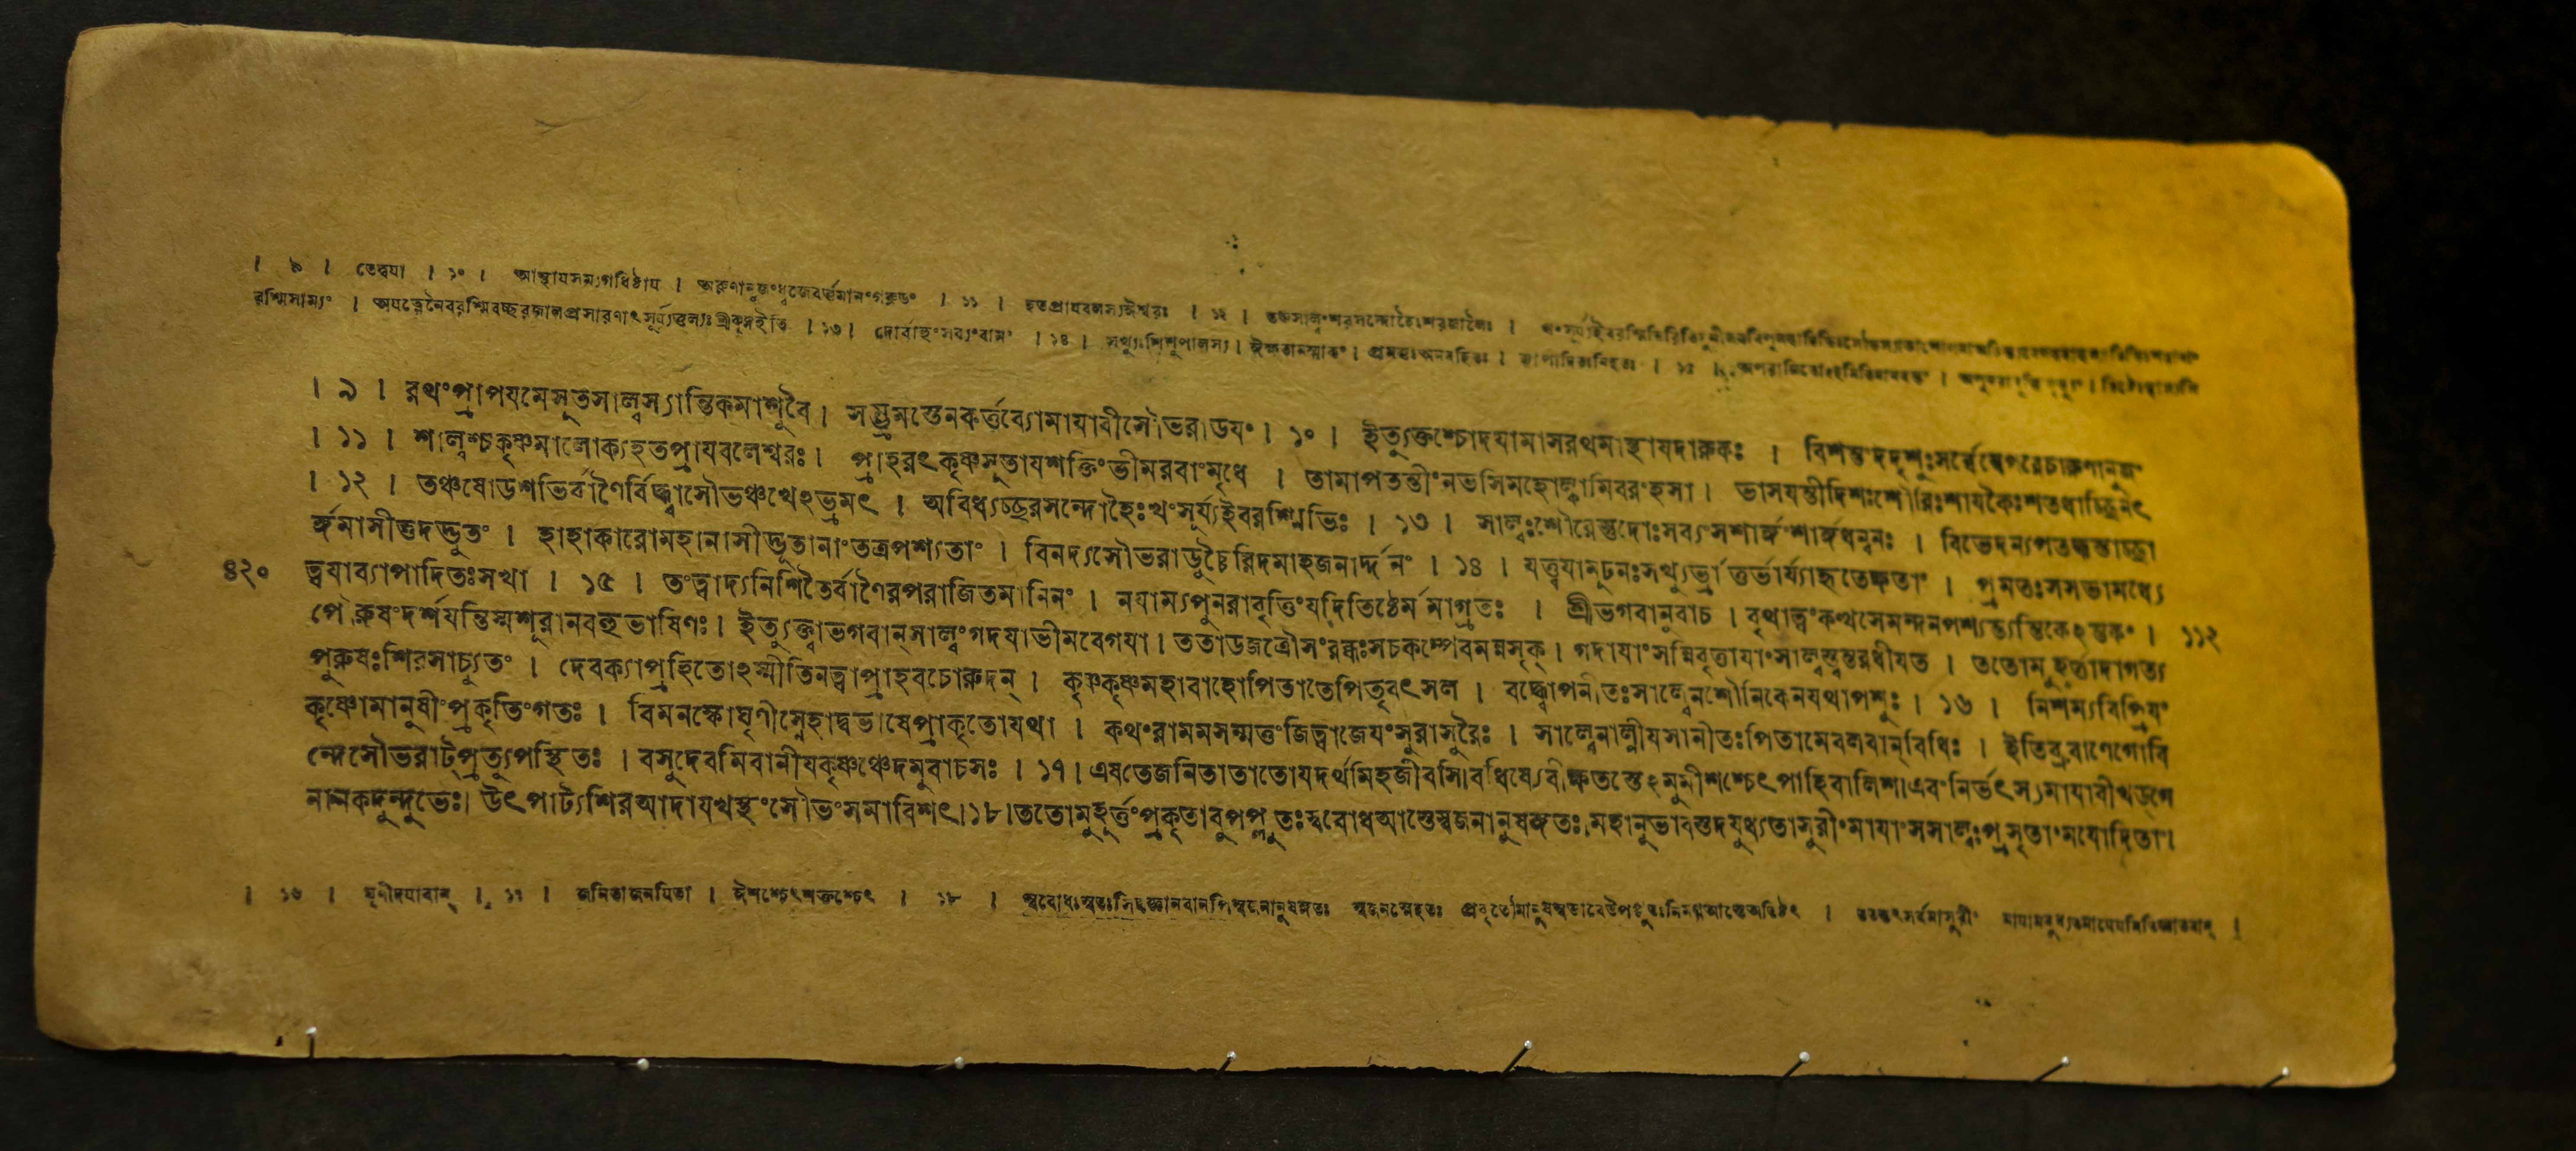 । ৯ । তেত্বযা । ১০ । আস্থাযসম্যগধিষ্ঠায । অরুণানুজংধ্বজেবর্ত্তমানংগরুডং । ১১ । হতপ্রাযবলস্যঈশ্বরঃ । ১২ । তঞ্চসাল্বংশরসন্দোহৈঃশরজালৈঃ ।
রশ্মিসাম্যং । অযত্নেনৈবরশ্মিবচ্ছরজালপ্রসারণাৎসূর্য্যতুল্যঃশ্রীকৃষ্ণইতি । ১৩ । দোর্বাহুংসব্যংবামং । ১৪ । সখ্যুঃশিশুপালস্য । ঈক্ষতামস্মাকং । প্রমত্তঃঅনবহিতঃ । ব্যাপাদিতঃনিহতঃ । ১৫ ।
। ৯ । রথংপ্রাপযমেসূতসাল্বস্যান্তিকমাশুবৈ । সম্ভ্রমস্তেনকর্ত্তব্যোমাযাবীসৌভরাডযং । ১০ । ইত্যুক্তশ্চোদযামাসরথমাস্থাযদারুকঃ । বিশন্তংদদৃশুঃসর্ব্বেস্বেপরেচারুণানুজং
। ১১ । শাল্বশ্চকৃষ্ণমালোক্যহতপ্রাযবলেশ্বরঃ । প্রাহরৎকৃষ্ণসূতাযশক্তিংভীমরবাংমৃধে । তামাপতন্তীংনভসিমহোল্কামিবরংহসা । ভাসযন্তীদিশঃশৌরিঃশাযকৈঃশতধাচ্ছিনৎ
। ১২ । তঞ্চষোডশভির্বাণৈর্বিদ্ধ্বাসৌভঞ্চখেঽভ্রমৎ । অবিধ্যচ্ছরসন্দোহৈঃখংসূর্য্যইবরশ্মিভিঃ । ১৩ । সাল্বঃশৌরেস্তুদোঃসব্যংসশার্ঙ্গংশার্ঙ্গধন্বনঃ । বিভেদন্যপতদ্ধস্তাচ্ছা
র্ঙ্গমাসীত্তদদ্ভুতং । হাহাকারোমহানাসীদ্ভূতানাংতত্রপশ্যতাং । বিনদ্যসৌভরাডুচ্চৈরিদমাহজনার্দ্দনং । ১৪ । যত্ত্বযামূঢনঃসখ্যুর্ভ্রাতুর্ভার্য্যাহৃতেক্ষতাং । প্রমত্তঃসসভামধ্যে
৪২০ ত্বযাব্যাপাদিতঃসখা । ১৫ । তংত্বাদ্যনিশিতৈর্বাণৈরপরাজিতমানিনং । নযাম্যপুনরাবৃত্তিংযদিতিষ্ঠের্মমাগ্রতঃ । শ্রীভগবানুবাচ । বৃথাত্বংকত্থসেমন্দনপশ্যস্যন্তিকেঽন্তকং । ১১২
পৌরুষংদর্শযন্তিস্মশূরানবহুভাষিণঃ । ইত্যুক্ত্বাভগবান্সাল্বংগদযাভীমবেগযা । ততাডজত্রৌসংরব্ধঃসচকম্পেবমন্নসৃক্ । গদাযাংসন্নিবৃত্তাযাংসাল্বস্ত্বন্তরধীযত । ততোমুহূর্ত্তাদাগত্য
পুরুষঃশিরসাচ্যুতং । দেবক্যাপ্রহিতোঽস্মীতিনত্বাপ্রাহবচোরুদন্ । কৃষ্ণকৃষ্ণমহাবাহোপিতাতেপিতৃবৎসল । বদ্ধ্বোপনীতঃসাল্বেনশৌনিকেনযথাপশুঃ । ১৬ । নিশম্যবিপ্রিযং
কৃষ্ণোমানুষীংপ্রকৃতিংগতঃ । বিমনস্কোঘৃণীস্নেহাদ্বভাষেপ্রাকৃতোযথা । কথংরামমসম্মত্তংজিত্বাজেযংসুরাসুরৈঃ । সাল্বেনাল্পীযসানীতঃপিতামেবলবান্বিধিঃ । ইতিব্রুবাণেগোবি
ন্দেসৌভরাট্প্রত্যুপস্থিতঃ । বসুদেবমিবানীযকৃষ্ণঞ্চেদমুবাচসঃ । ১৭ । এষতেজনিতাতাতোযদর্থমিহজীবসি।বধিষ্যেবীক্ষতস্তেঽমুমীশশ্চেৎপাহিবালিশ।এবংনির্ভৎস্যমাযাবীখড্গে
নানকদুন্দুভেঃ। উৎপাট্যশিরআদাযখস্থংসৌভংসমাবিশৎ।১৮।ততোমুহূর্ত্তংপ্রকৃতাবুপপ্লুতঃস্ববোধআস্তেস্বজনানুষঙ্গতঃ।মহানুভাবস্তদবুধ্যতাসুরীংমাযাংসসাল্বঃপ্রসৃতাংমযোদিতাং।
। ১৬ । ঘৃণীদযাবান্ । ১৭ । জনিতাজনযিতা । ঈশশ্চেৎশক্তশ্চেৎ । ১৮ । স্ববোধঃস্বতঃসিদ্ধজ্ঞানবানপিস্বজনানুষঙ্গতঃ স্বজনস্নেহতঃ